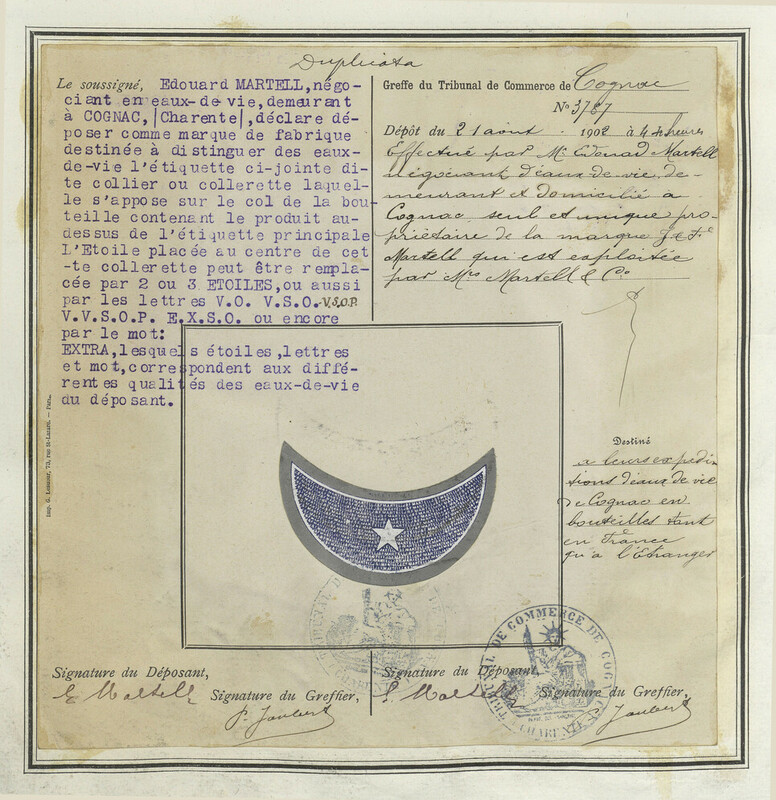 Duplicata
Le soussigné, Edouard MARTELL, négo-
ciant en eaux-de-vie, demeurant
à COGNAC, |Charente|, déclare dé-
poser comme marque de fabrique
destinée à distinguer des eaux-
de-vie l'étiquette ci-jointe di-
te collier ou collerette laquel-
le s'appose sur le col de la bou-
teille contenant le produit au-
dessus de l'étiquette principale
L'Etoile placée au centre de cet
-te collerette peut être rempla-
cée par 2 ou 3 ETOILES, ou aussi
par les lettres V.O. V.S.O. V.S.O.P.
V.V.S.O.P. E.X.S.O. ou encore
par le mot:
EXTRA, lesquels étoiles, lettres
et mot, correspondent aux diffé-
rentes qualités des eaux-de-vie
du déposant.
Greffe du Tribunal de Commerce de Cognac
No 3787
Dépôt du 21 août 1902 à 4 heures
Effectué par Mr Edouard Martell
négociant d'eaux de vie, de-
meurant et domicilié à
Cognac seul et unique pro-
priétaire de la marque J. et F.
Martell qui est exploitée
par Mrs Martell & Co
Destiné
a leurs expédi-
tions d'eaux de vie
de Cognac en
bouteilles tant
en France
qu'a l'Etranger
Imp. G. Lesueur, 73, rue St-Lazare. — Paris.
Signature du Déposant,
E Martell
Signature du Greffier,
P. Jaubert
Signature du Déposant
E Martell
Signature du Greffier,
Jaubert
TRIBUNAL DE COMMERCE DE COGNAC
CHARENTE